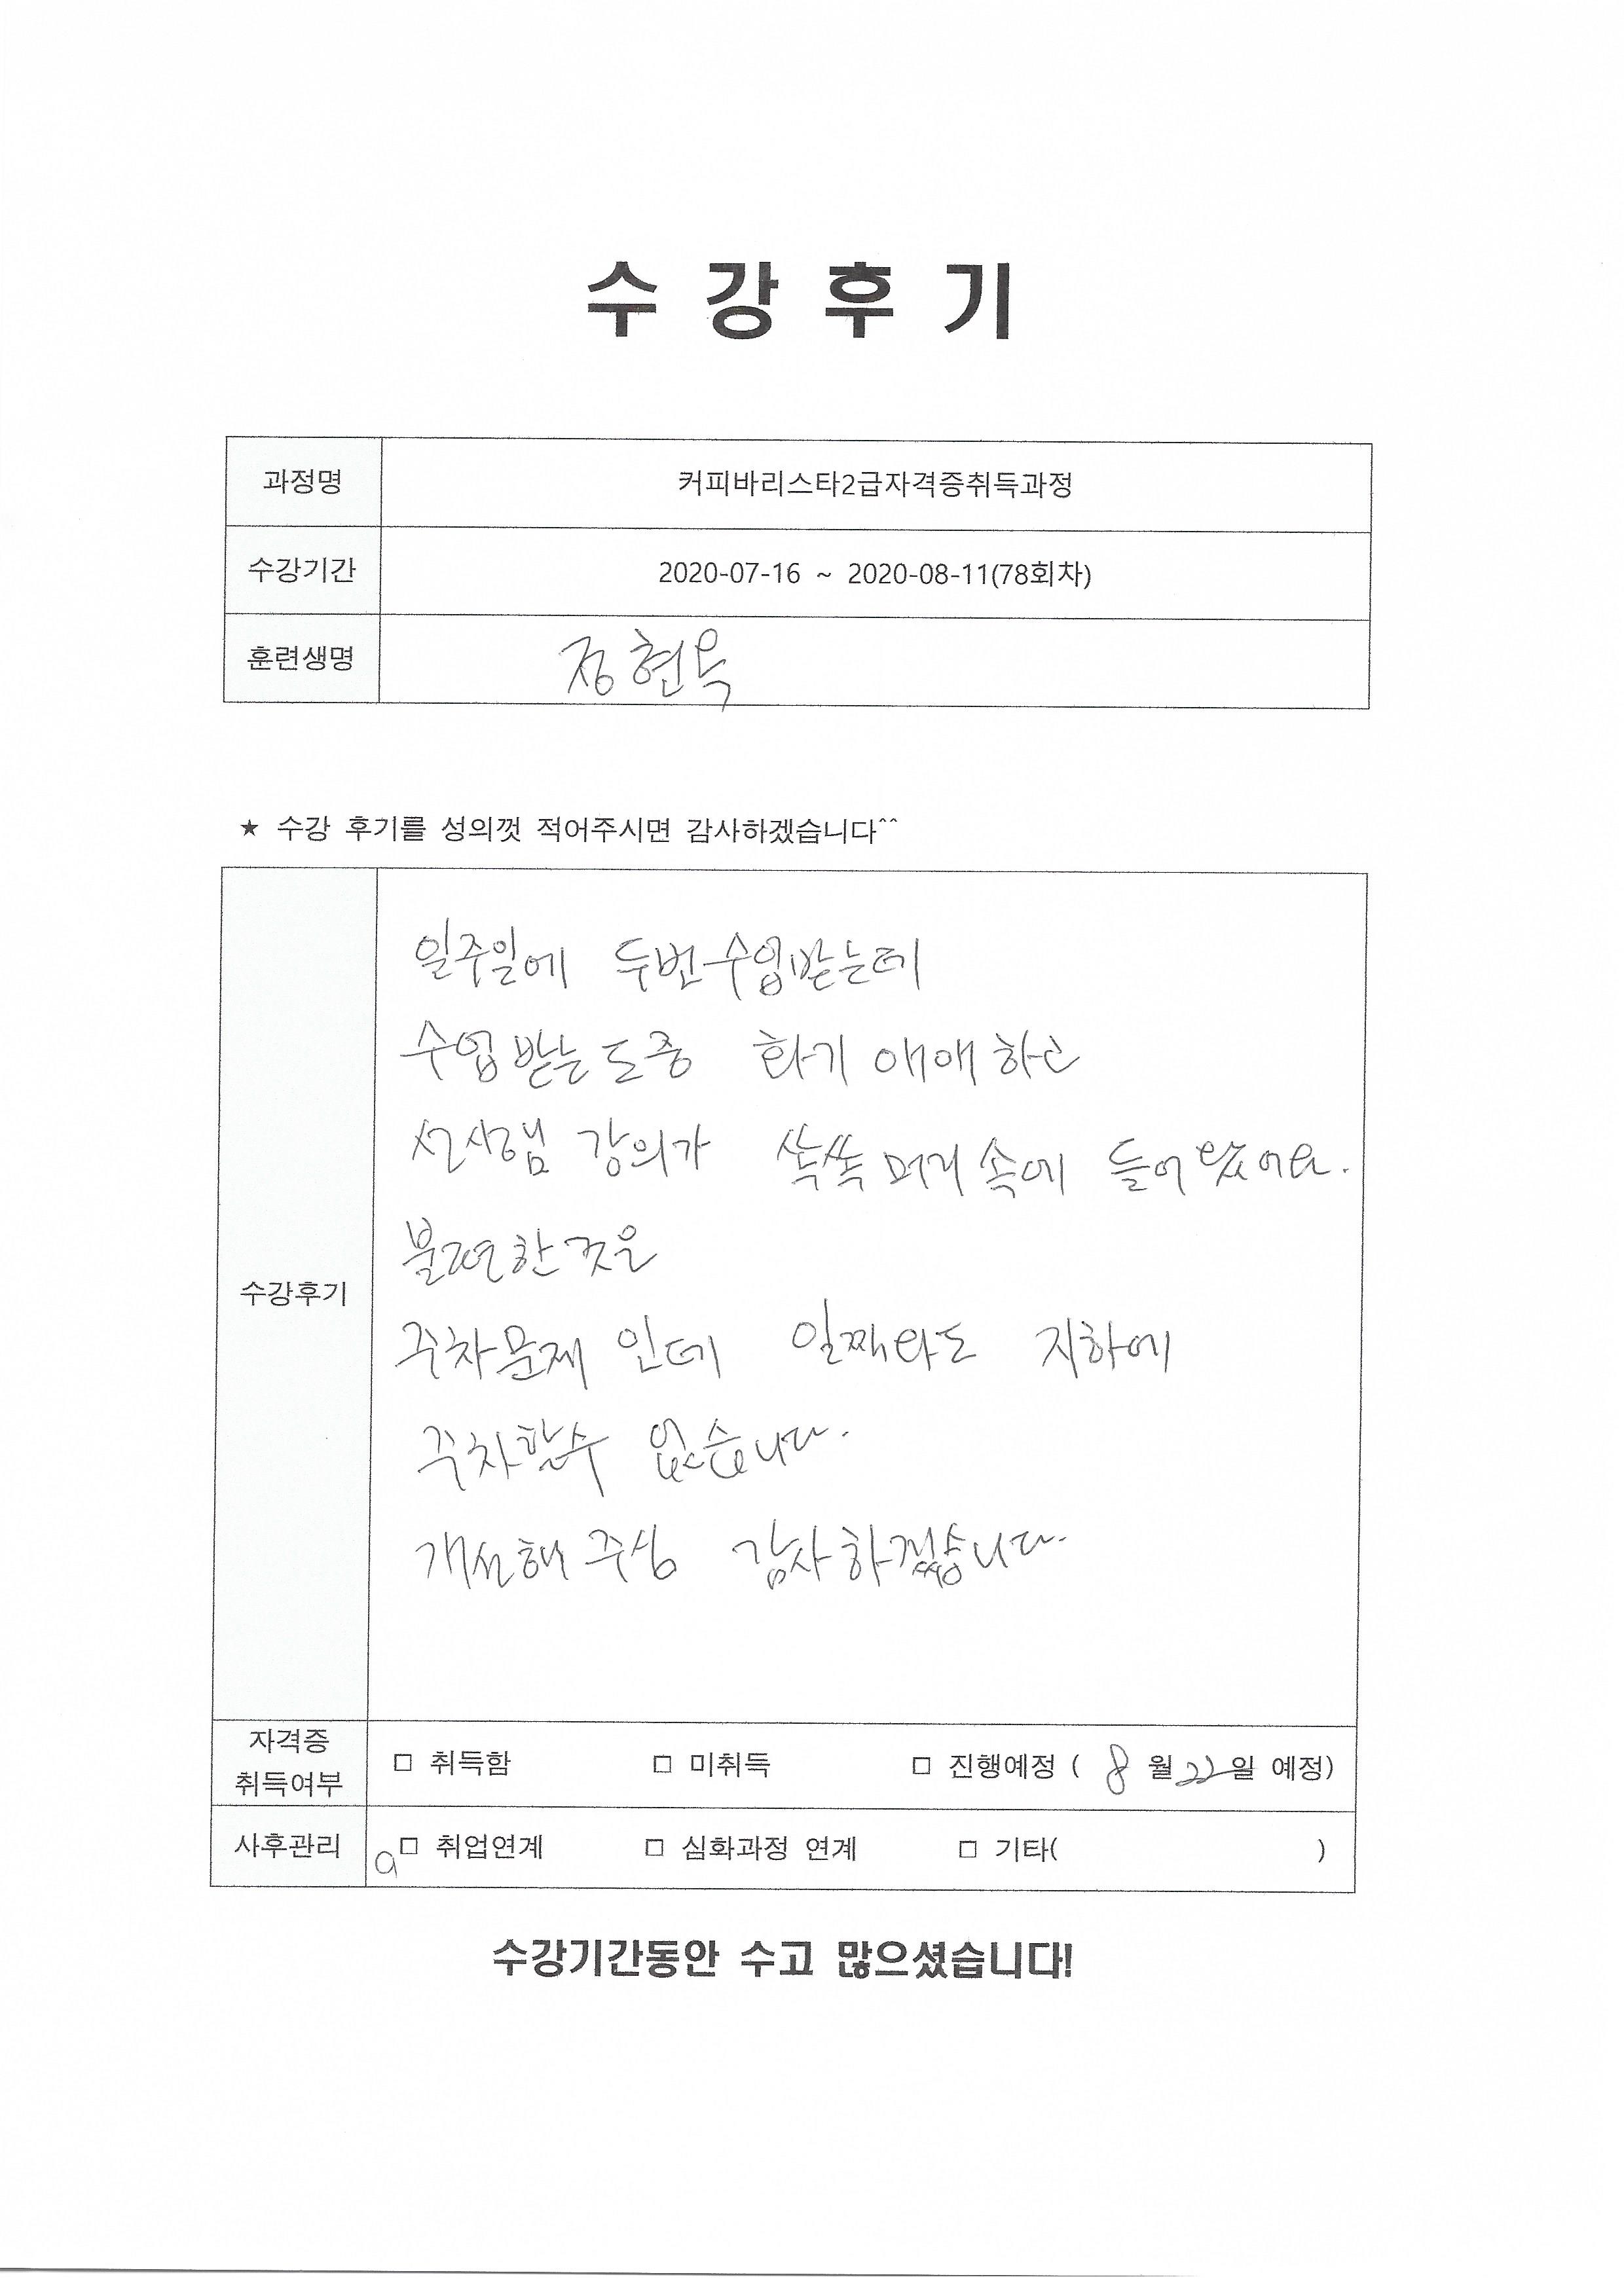 수 강 후 기
과정명 커피바리스타2급자격증취득과정
수강기간 2020-07-16 ~ 2020-08-11(78회차)
훈련생명 정현옥
★ 수강 후기를 성의껏 적어주시면 감사하겠습니다^^
수강후기
일주일에 두번수업받는데
수업받는도중 화기애애하고
선생님 강의가 쏙쏙 머리속에 들어왔어요.
불편한것은
주차문제인데 일찍와도 지하에
주차할수 없습니다.
개선해주심 감사하겠습니다.
자격증 취득여부 □ 취득함 □ 미취득 □ 진행예정 ( 8 월 22 일 예정)
사후관리 □ 취업연계 □ 심화과정 연계 □ 기타( )
수강기간동안 수고 많으셨습니다!